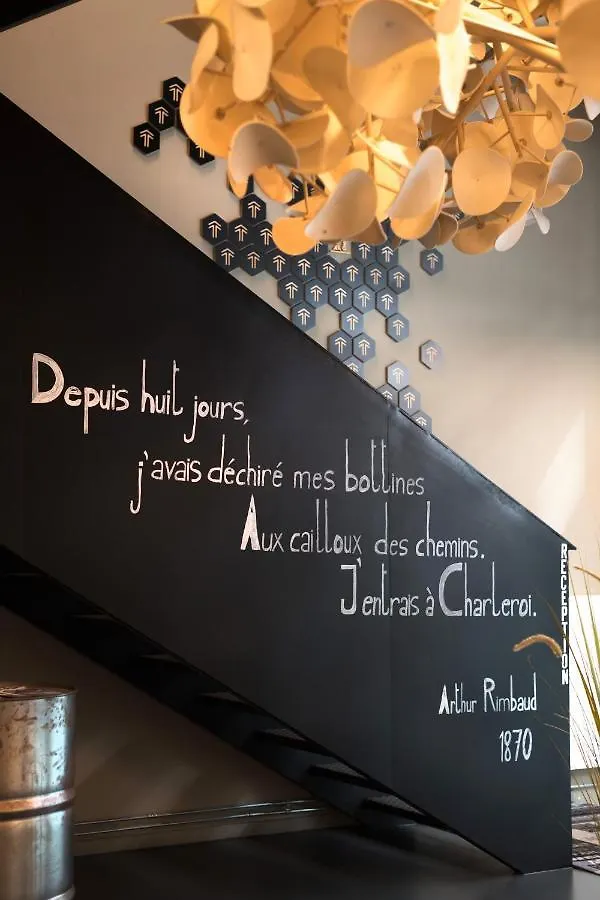 Depuis huit jours,
j'avais déchiré mes bottines
Aux cailloux des chemins.
J'entrais à Charleroi.
Arthur Rimbaud
1870
RECEPTION